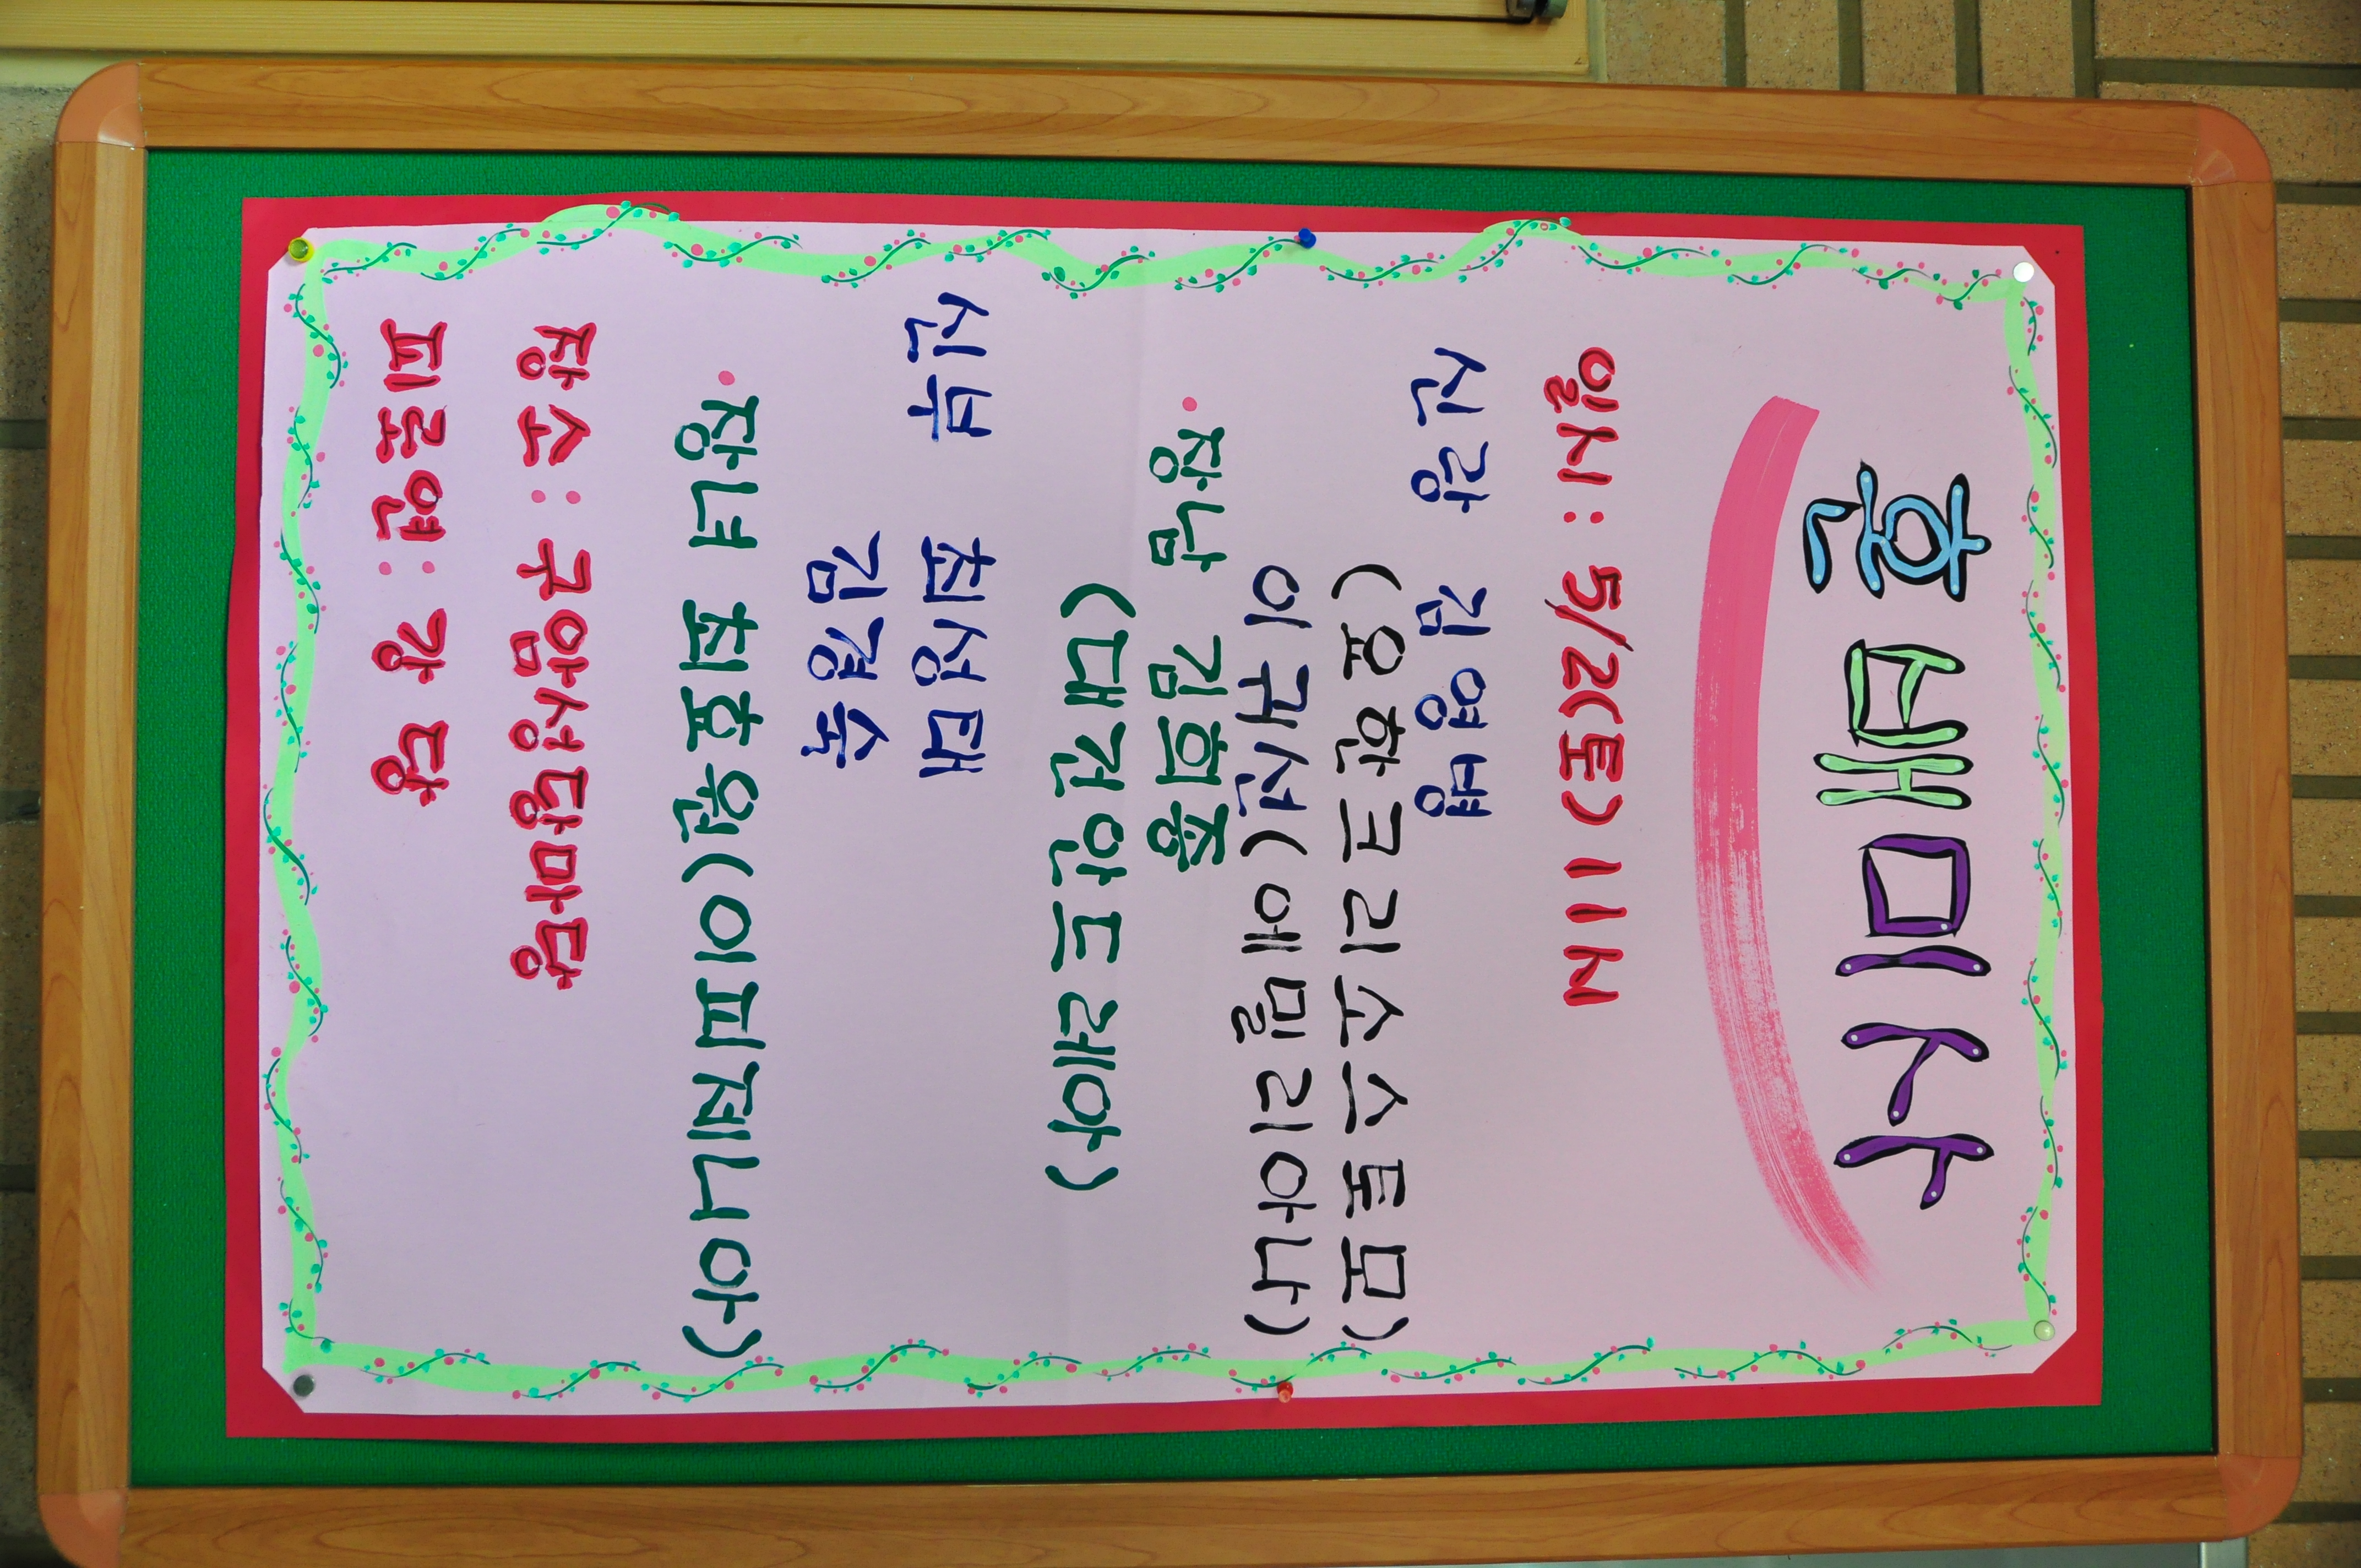 혼배미사
일시 : 5/2(토) 11시
신랑 김영병
(요한크리소스토모)
이귀선(에밀리아나)
·장남 김희중
(대건안드레아)
신부 최성태
김경숙
·장녀 최호원(이피제니아)
장소 : 구암성당마당
피로연 : 강당